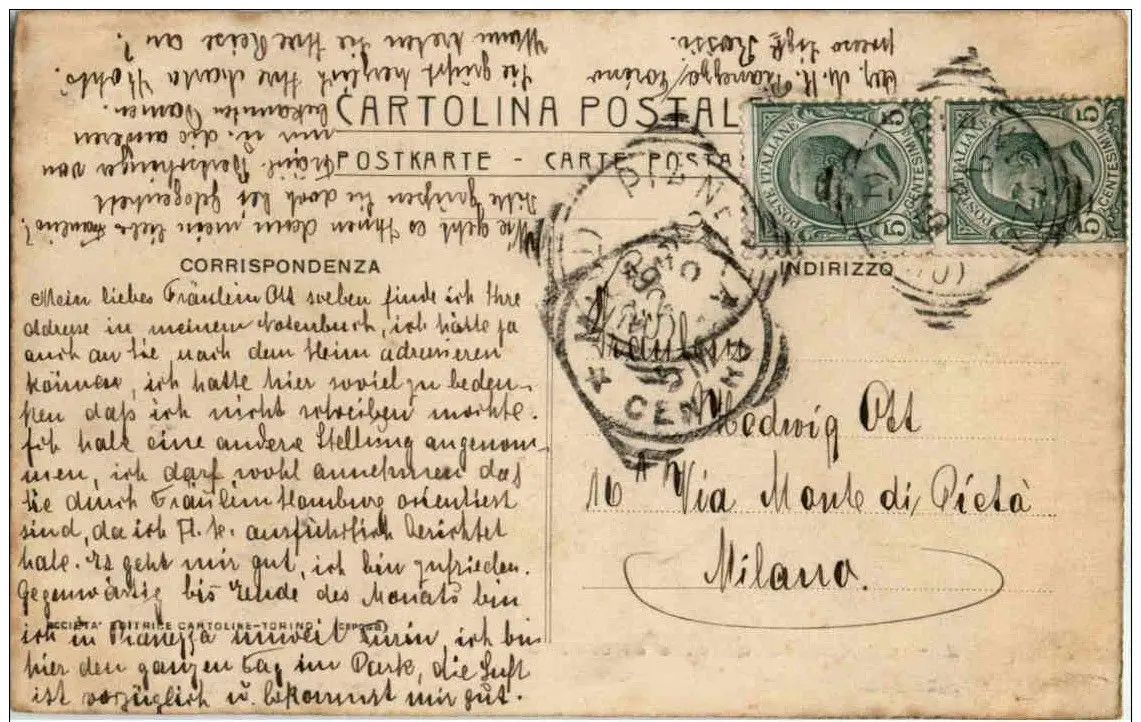 CARTOLINA POSTAL
POSTKARTE - CARTE POSTA
CORRISPONDENZA
INDIRIZZO
Mein liebes Fräulein Ott soeben finde ich Ihre
adresse in meinem Notenbuch, ich hätte ja
auch an Sie, nach dem Heim adressieren
können, ich hatte hier soviel zu beden-
ken daß ich nicht schreiben mochte.
Ich habe eine andere Stellung angenom-
men, ich darf wohl annehmen daß
Sie durch Fräulein Homburg orientiert
sind, da ich Fl. H. ausführlich berichtet
habe. Es geht mir gut, ich bin zufrieden.
Gegenwärtig bis Ende des Monats bin
ich in Pianezza unweit Turin, ich bin
hier den ganzen Tag im Park, die Luft
ist vorzüglich u. bekommt mir gut.
Wie geht es Ihnen denn mein liebes Fräulein?
Bitte grüßen Sie doch bei gelegenheit
Fräul. von
mir u. die anderen
bekannten Damen.
Sie grüßt herzlich Ihre
Wann treten Sie Ihre Reise an?
Pianezza/Torino
presso Rossi.
Fräulein
Hedwig Ott
16A Via Monte di Pietà
Milano.
POSTE ITALIANE
CENTESIMI 5
POSTE ITALIANE
CENTESIMI 5
MILANO
CENTRO
SOCIETA' EDITRICE CARTOLINE-TORINO